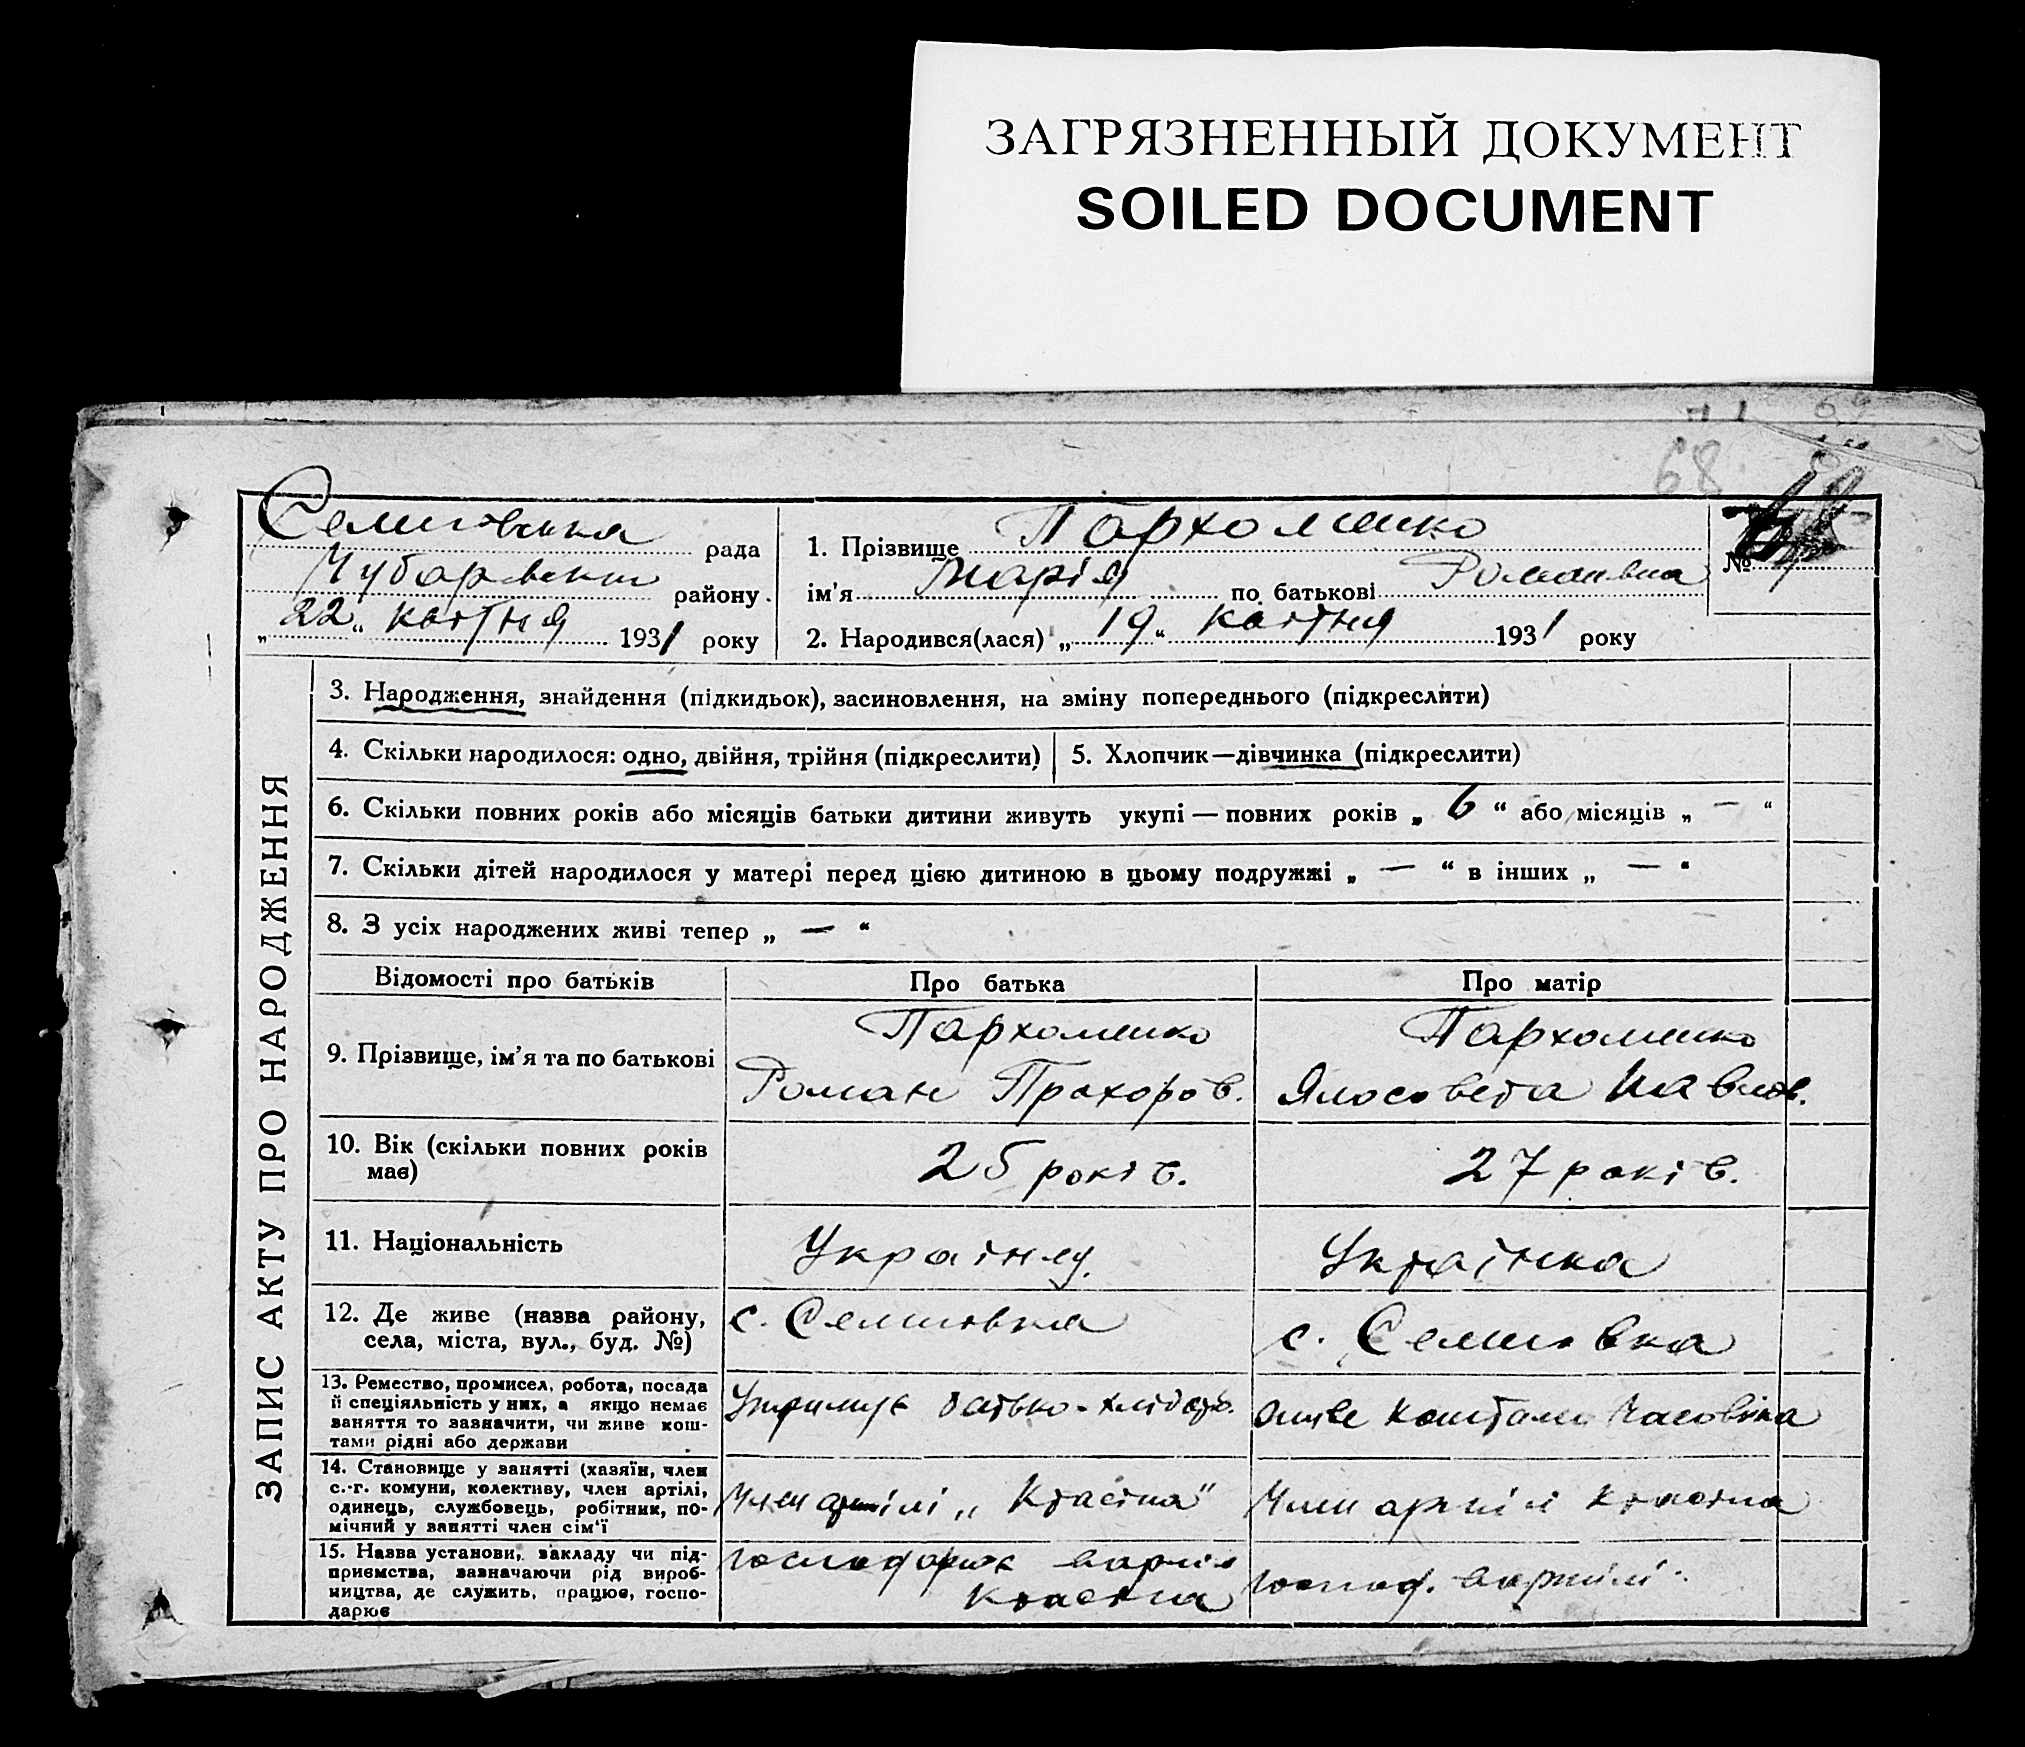 ЗАГРЯЗНЕННЫЙ ДОКУМЕНТ
SOILED DOCUMENT
68
рада
Чубарівськ району
„22“ квітня 1931 року
1. Прізвище Пархоменко
ім'я Марія по батькові Романівна
№
2. Народився(лася) „19“ квітня 1931 року
ЗАПИС АКТУ ПРО НАРОДЖЕННЯ
3. Народження, знайдення (підкидьок), засиновлення, на зміну попереднього (підкреслити)
4. Скільки народилося: одно, двійня, трійня (підкреслити)
5. Хлопчик—дівчинка (підкреслити)
6. Скільки повних років або місяців батьки дитини живуть укупі — повних років „ 6 “ або місяців „ — “
7. Скільки дітей народилося у матері перед цією дитиною в цьому подружжі „ — “ в інших „ — “
8. З усіх народжених живі тепер „ — “
Відомості про батьків
Про батька
Про матір
9. Прізвище, ім'я та по батькові
Пархоменко
Роман Прохоров.
Пархоменко
Ялосовета Павлов.
10. Вік (скільки повних років
має)
25 років.
27 років.
11. Національність
Українц.
Українка
12. Де живе (назва району,
села, міста, вул., буд. №)
с.
с.
13. Ремество, промисел, робота, посада
й спеціяльність у них, а якщо немає
заняття то зазначити, чи живе кош-
тами рідні або держави
Утримує батько
живе коштами
14. Становище у занятті (хазяїн, член
с.-г. комуни, колективу, член артілі,
одинець, службовець, робітник, по-
мічний у занятті член сім'ї
Член артілі „
Член артілі
15. Назва установи, закладу чи під-
приємства, зазначаючи рід вироб-
ництва, де служить, працює, госпо-
дарює
господарює вартіл
господ. вартілі